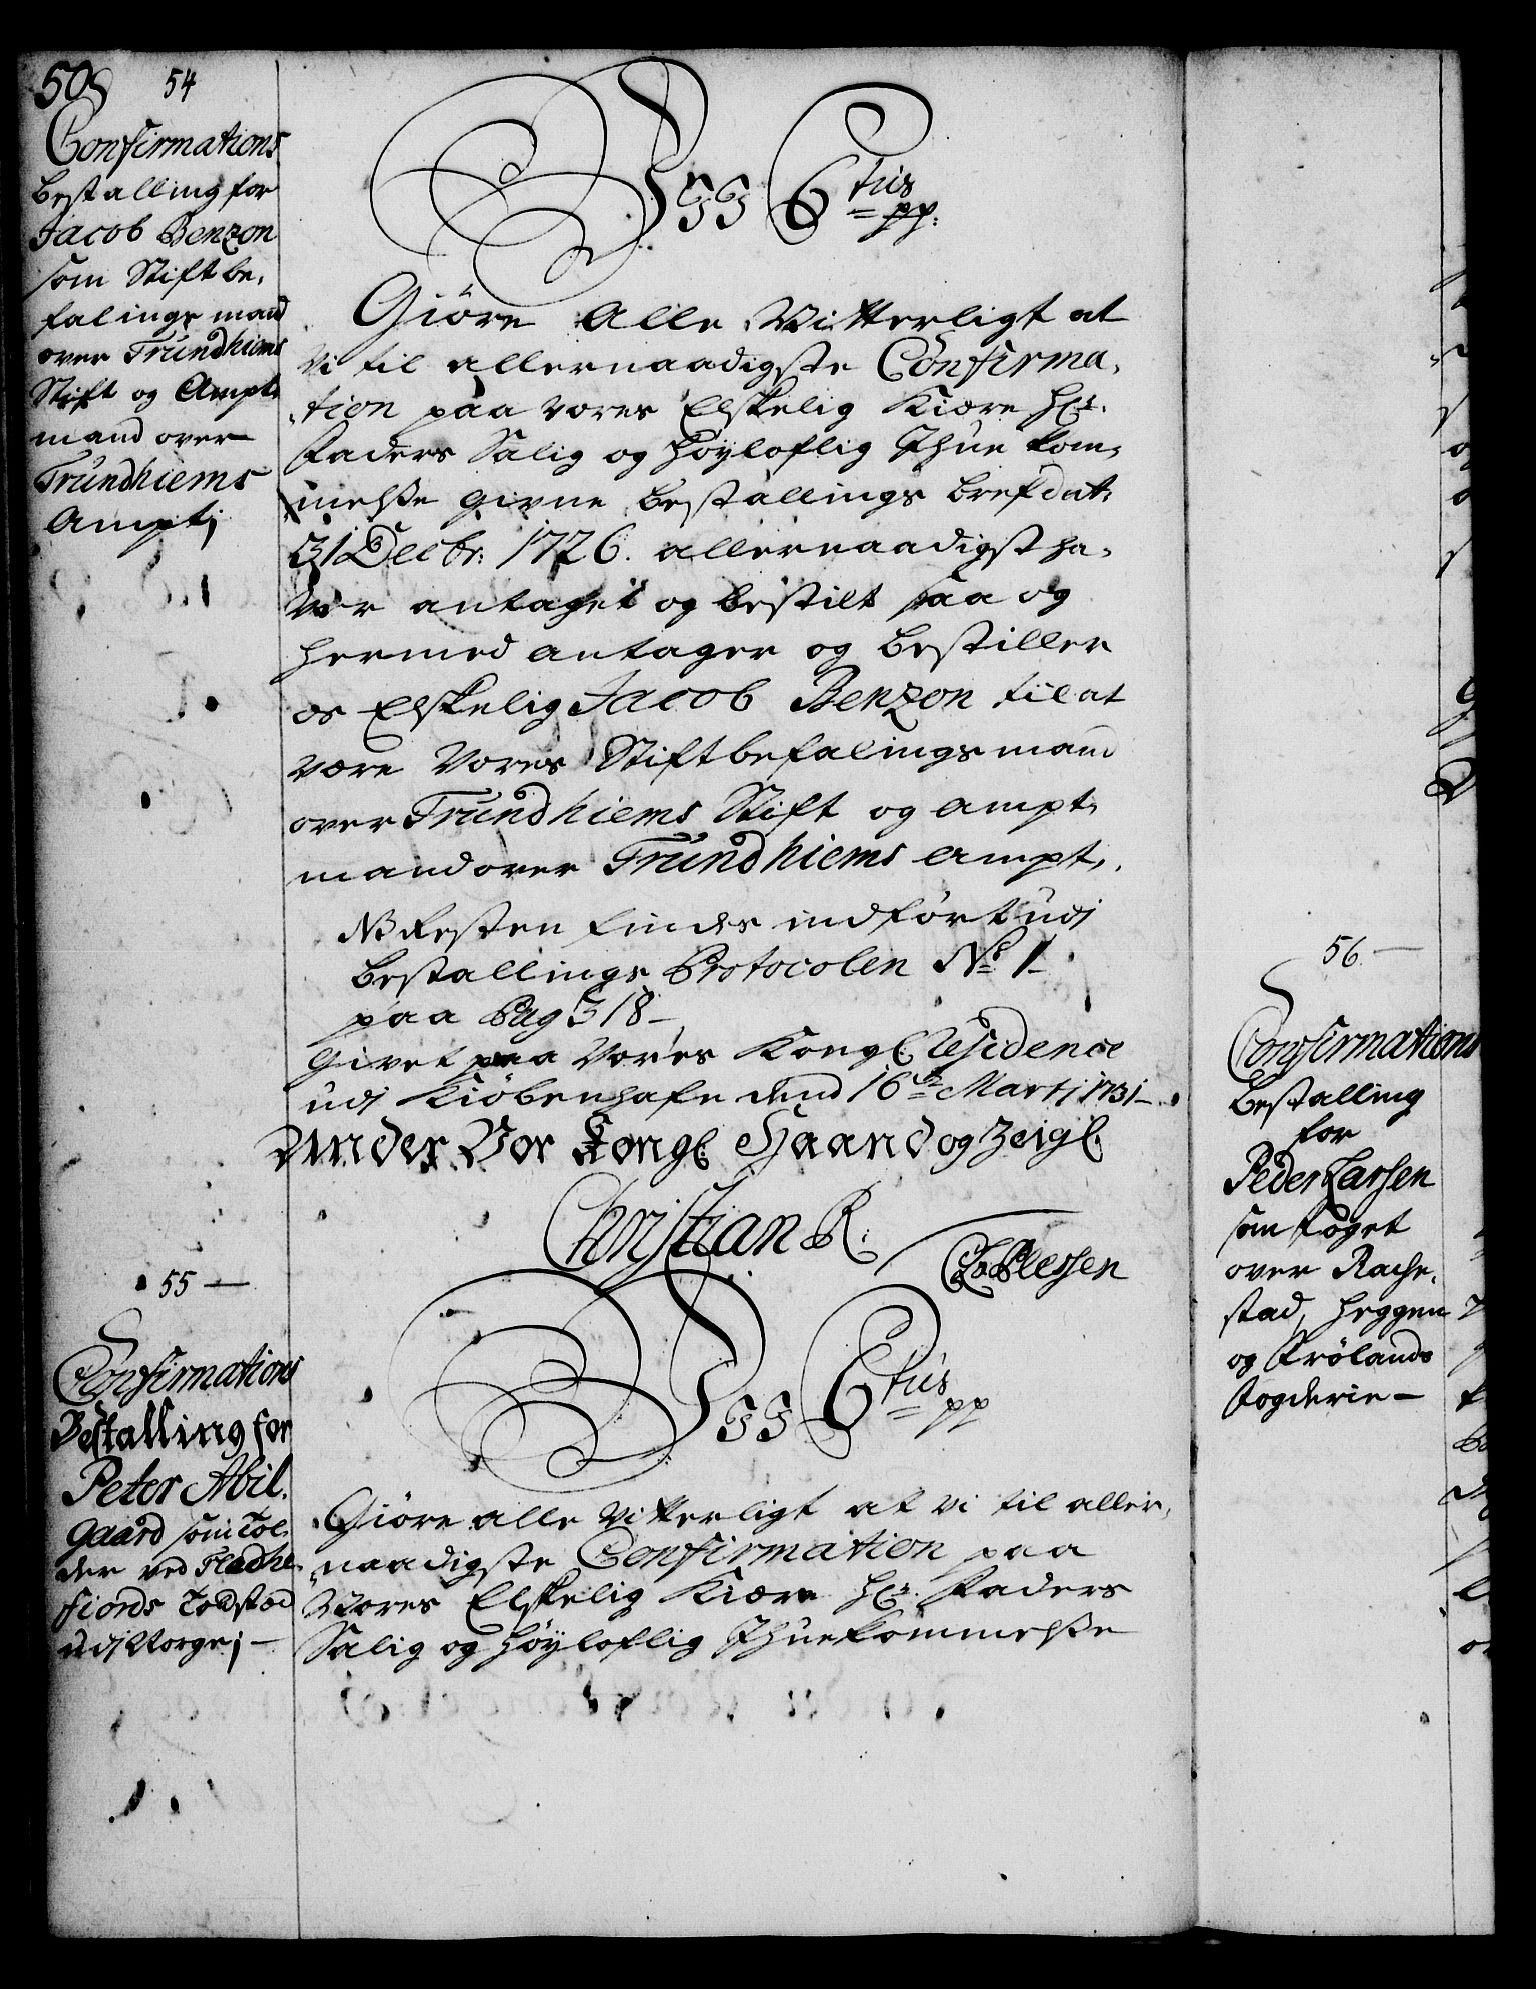 50
54
Confirmations
Bestalling for
Jacob Benzon
som Stiftbe,
falings mand
over Trundhiems
Stift og Ampt,
mand over
Trundhiems
Ampt;
Vi C 6tus pp:
Giöre Alle Vitterligt at
Vi til allernaadigste Confirma,
tion paa vores Elskelig Kiære Hr.
Faders Salig og Höyloflig Ihue kom,
melsse givne Bestallings bref dat,
31 Decbr: 1726. allernaadigst ha,
ver antaget og bestilt saa og
hermed antager og bestiller
os Elskelig Jacob Benzon til at
være Vores Stiftbefalings mand
over Trundhiems Stift og Ampt,
mand over Trundhiems Ampt,.
NB Resten findes indfört udj
Bestallings Protocolen No 1
paa Pag 318 –
Givet paa Vores Kongl. Residence
udj Kiöbenhafn dend 16de Martj 1731 –
Under Vor Kongl. Haand og Zeigl.
Christian R.
Plessen
55 –
Confirmations
Bestalling for
Peter Abil,
gaard som Tol,
der ved Fladhe
fiords Toldsted
udj Norge; –
C 6tus pp
Giöre alle Vitterligt at vi til aller,
naadigste Confirmation paa
Vores Elskelig Kiære Hr. Faders
Salig og Höyloflig Ihuekommelsse
56 –
Confirmations
Bestalling
for
Peder Larsen
som Foget
over Rache,
stad, Heggen
og Frölands
Fogderie –